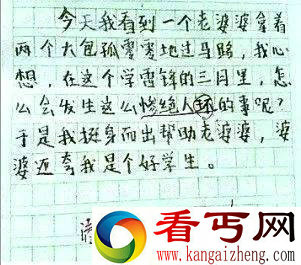 今天我看到一个老婆婆拿着
两个大包孤零零地过马路，我心
想，在这个学雷锋的三月里，怎
么会发生这么惨绝人环的事呢？
于是我挺身而出帮助老婆婆，婆
婆还夸我是个好学生。
看丐网
www.kangaizheng.com